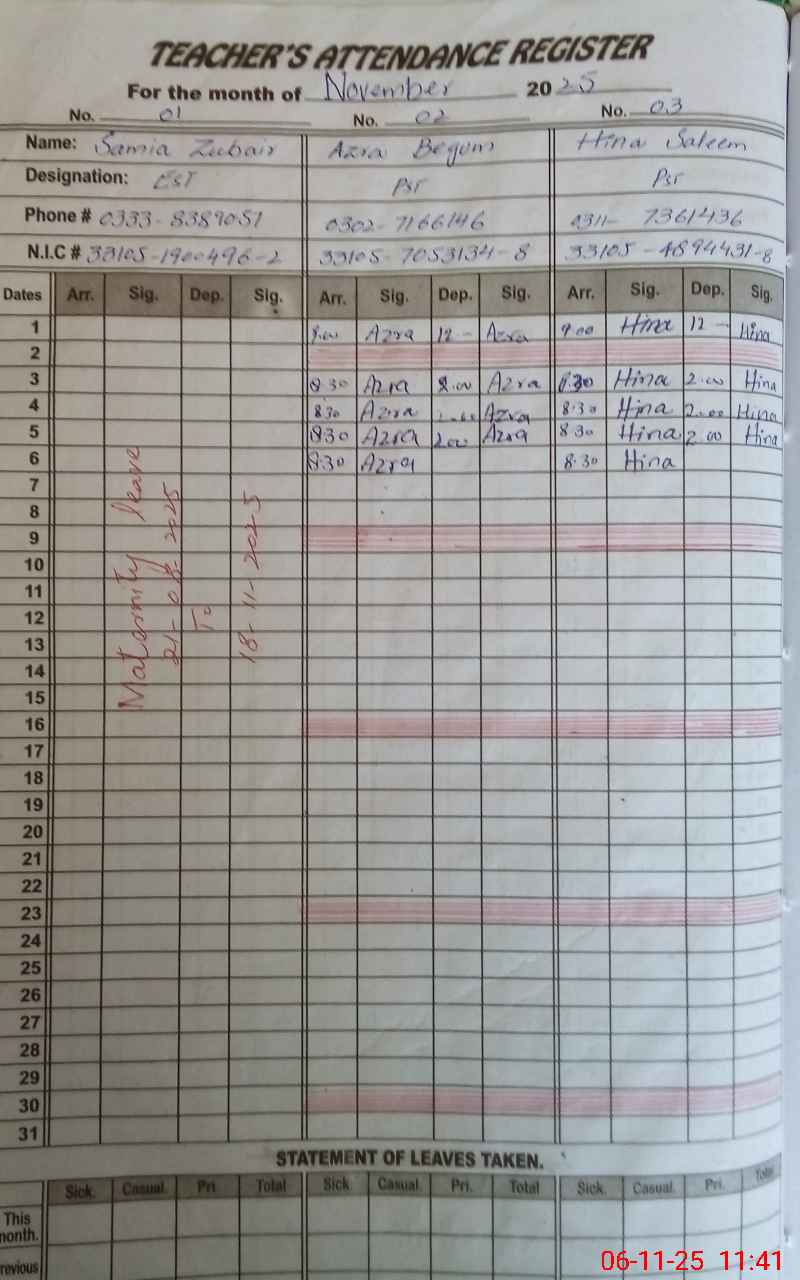 TEACHER'S ATTENDANCE REGISTER
For the month of November 2025
No. 01 No. 02 No. 03
Name: Samia Zubair Azra Begum Hina Saleem
Designation: EST PST PST
Phone # 0333-8389051 0302-7166146 0311-7361436
N.I.C # 33105-1900496-2 33105-7053134-8 33105-4894431-8
Dates Arr. Sig. Dep. Sig. Arr. Sig. Dep. Sig. Arr. Sig. Dep. Sig.
1 Azra 12 - Azra 9.00 Hina 12 - Hina
2
3 8.30 Azra 2.00 Azra 8.30 Hina 2.00 Hina
4 8.30 Azra 2.00 Azra 8.30 Hina 2.00 Hina
5 8.30 Azra 2.00 Azra 8.30 Hina 2.00 Hina
6 8.30 Azra 8.30 Hina
7
8
9
10
11
12
13
14
15
16
17
18
19
20
21
22
23
24
25
26
27
28
29
30
31
Maternity leave
21-08-2025
To
18-11-2025
STATEMENT OF LEAVES TAKEN.
Sick. Casual. Pri. Total Sick Casual. Pri. Total Sick. Casual. Pri. Total
This
month.
revious
06-11-25 11:41